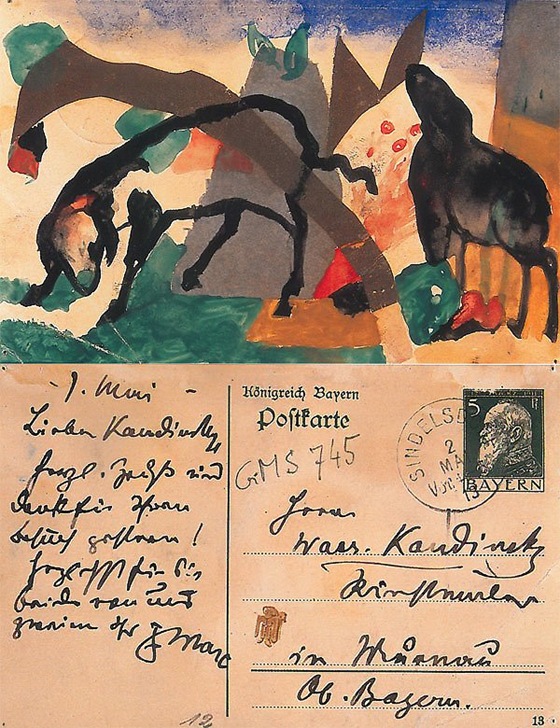 - 1. Mai -
Lieber Kandinsky,
herzl. Gruß und
Dank für Ihren
Besuch gestern!
Herzlichst für Sie
beide von uns
zweien Ihr F Marc
12
Königreich Bayern
Postkarte
GMS 745
SINDELSD
2
MAI
13
5 Pf
BAYERN
Herrn
Wass. Kandinsky
Kunstmaler
in Murnau
Ob. Bayern.
13